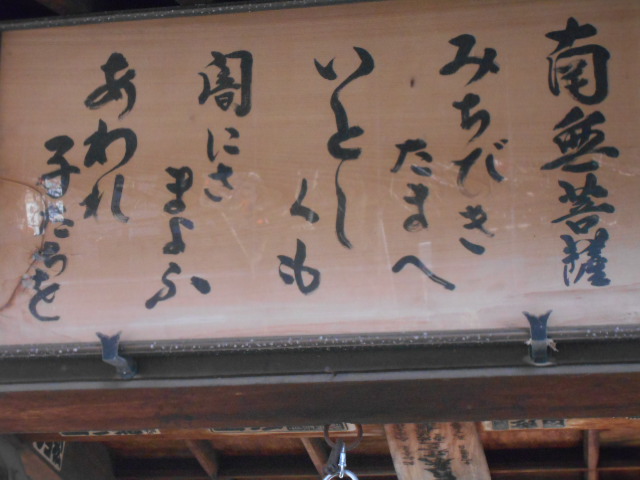 南無菩薩
みちびき
たまへ
いとし
くも
闇にさ
まよふ
あわれ
子たちを